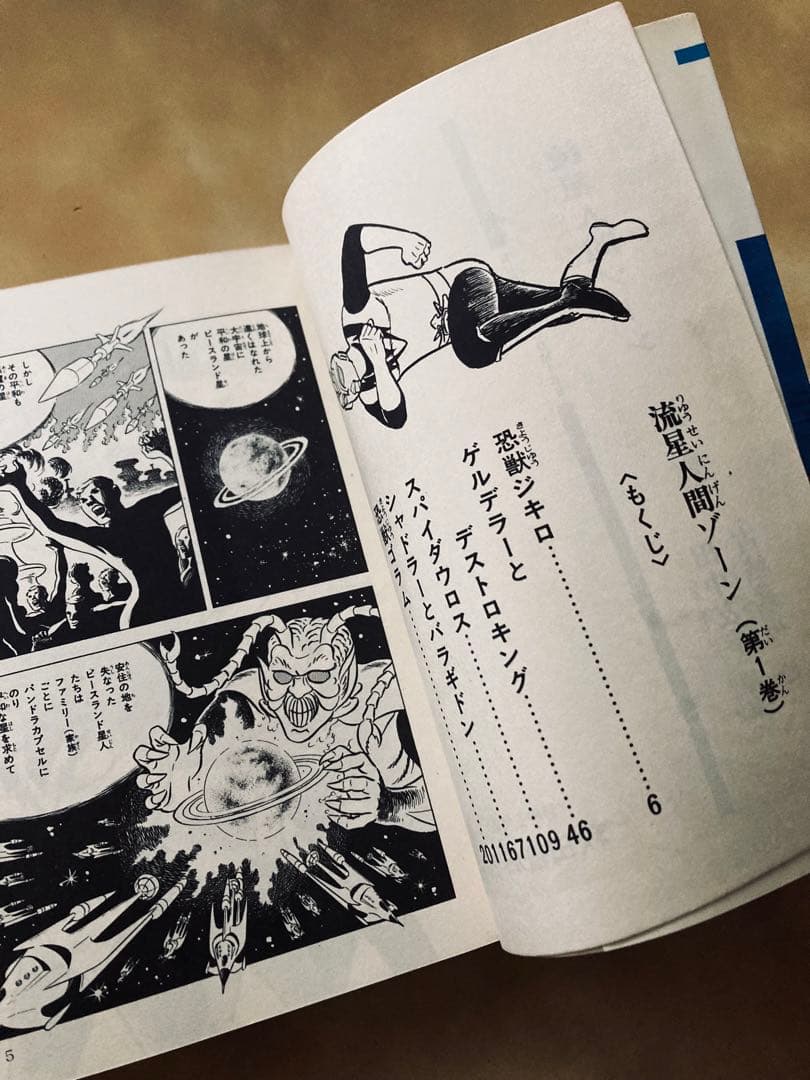 流星人間ゾーン(第1巻)
〈もくじ〉
恐獣ジキロ……………6
ゲルデラーと
デストロキング……………46
スパイダウロス……………109
シャドラーとバラギドン……………167
恐獣ゴラム……………201
地球上から
遠くはなれた
大宇宙に
平和の星
ピースランド星
が
あった
しかし
その平和も
の星
安住の地を
失なった
ピースランド星人
たちは
ファミリー(家族)
ごとに
パンドラカプセルに
のり
和な星を求めて
5